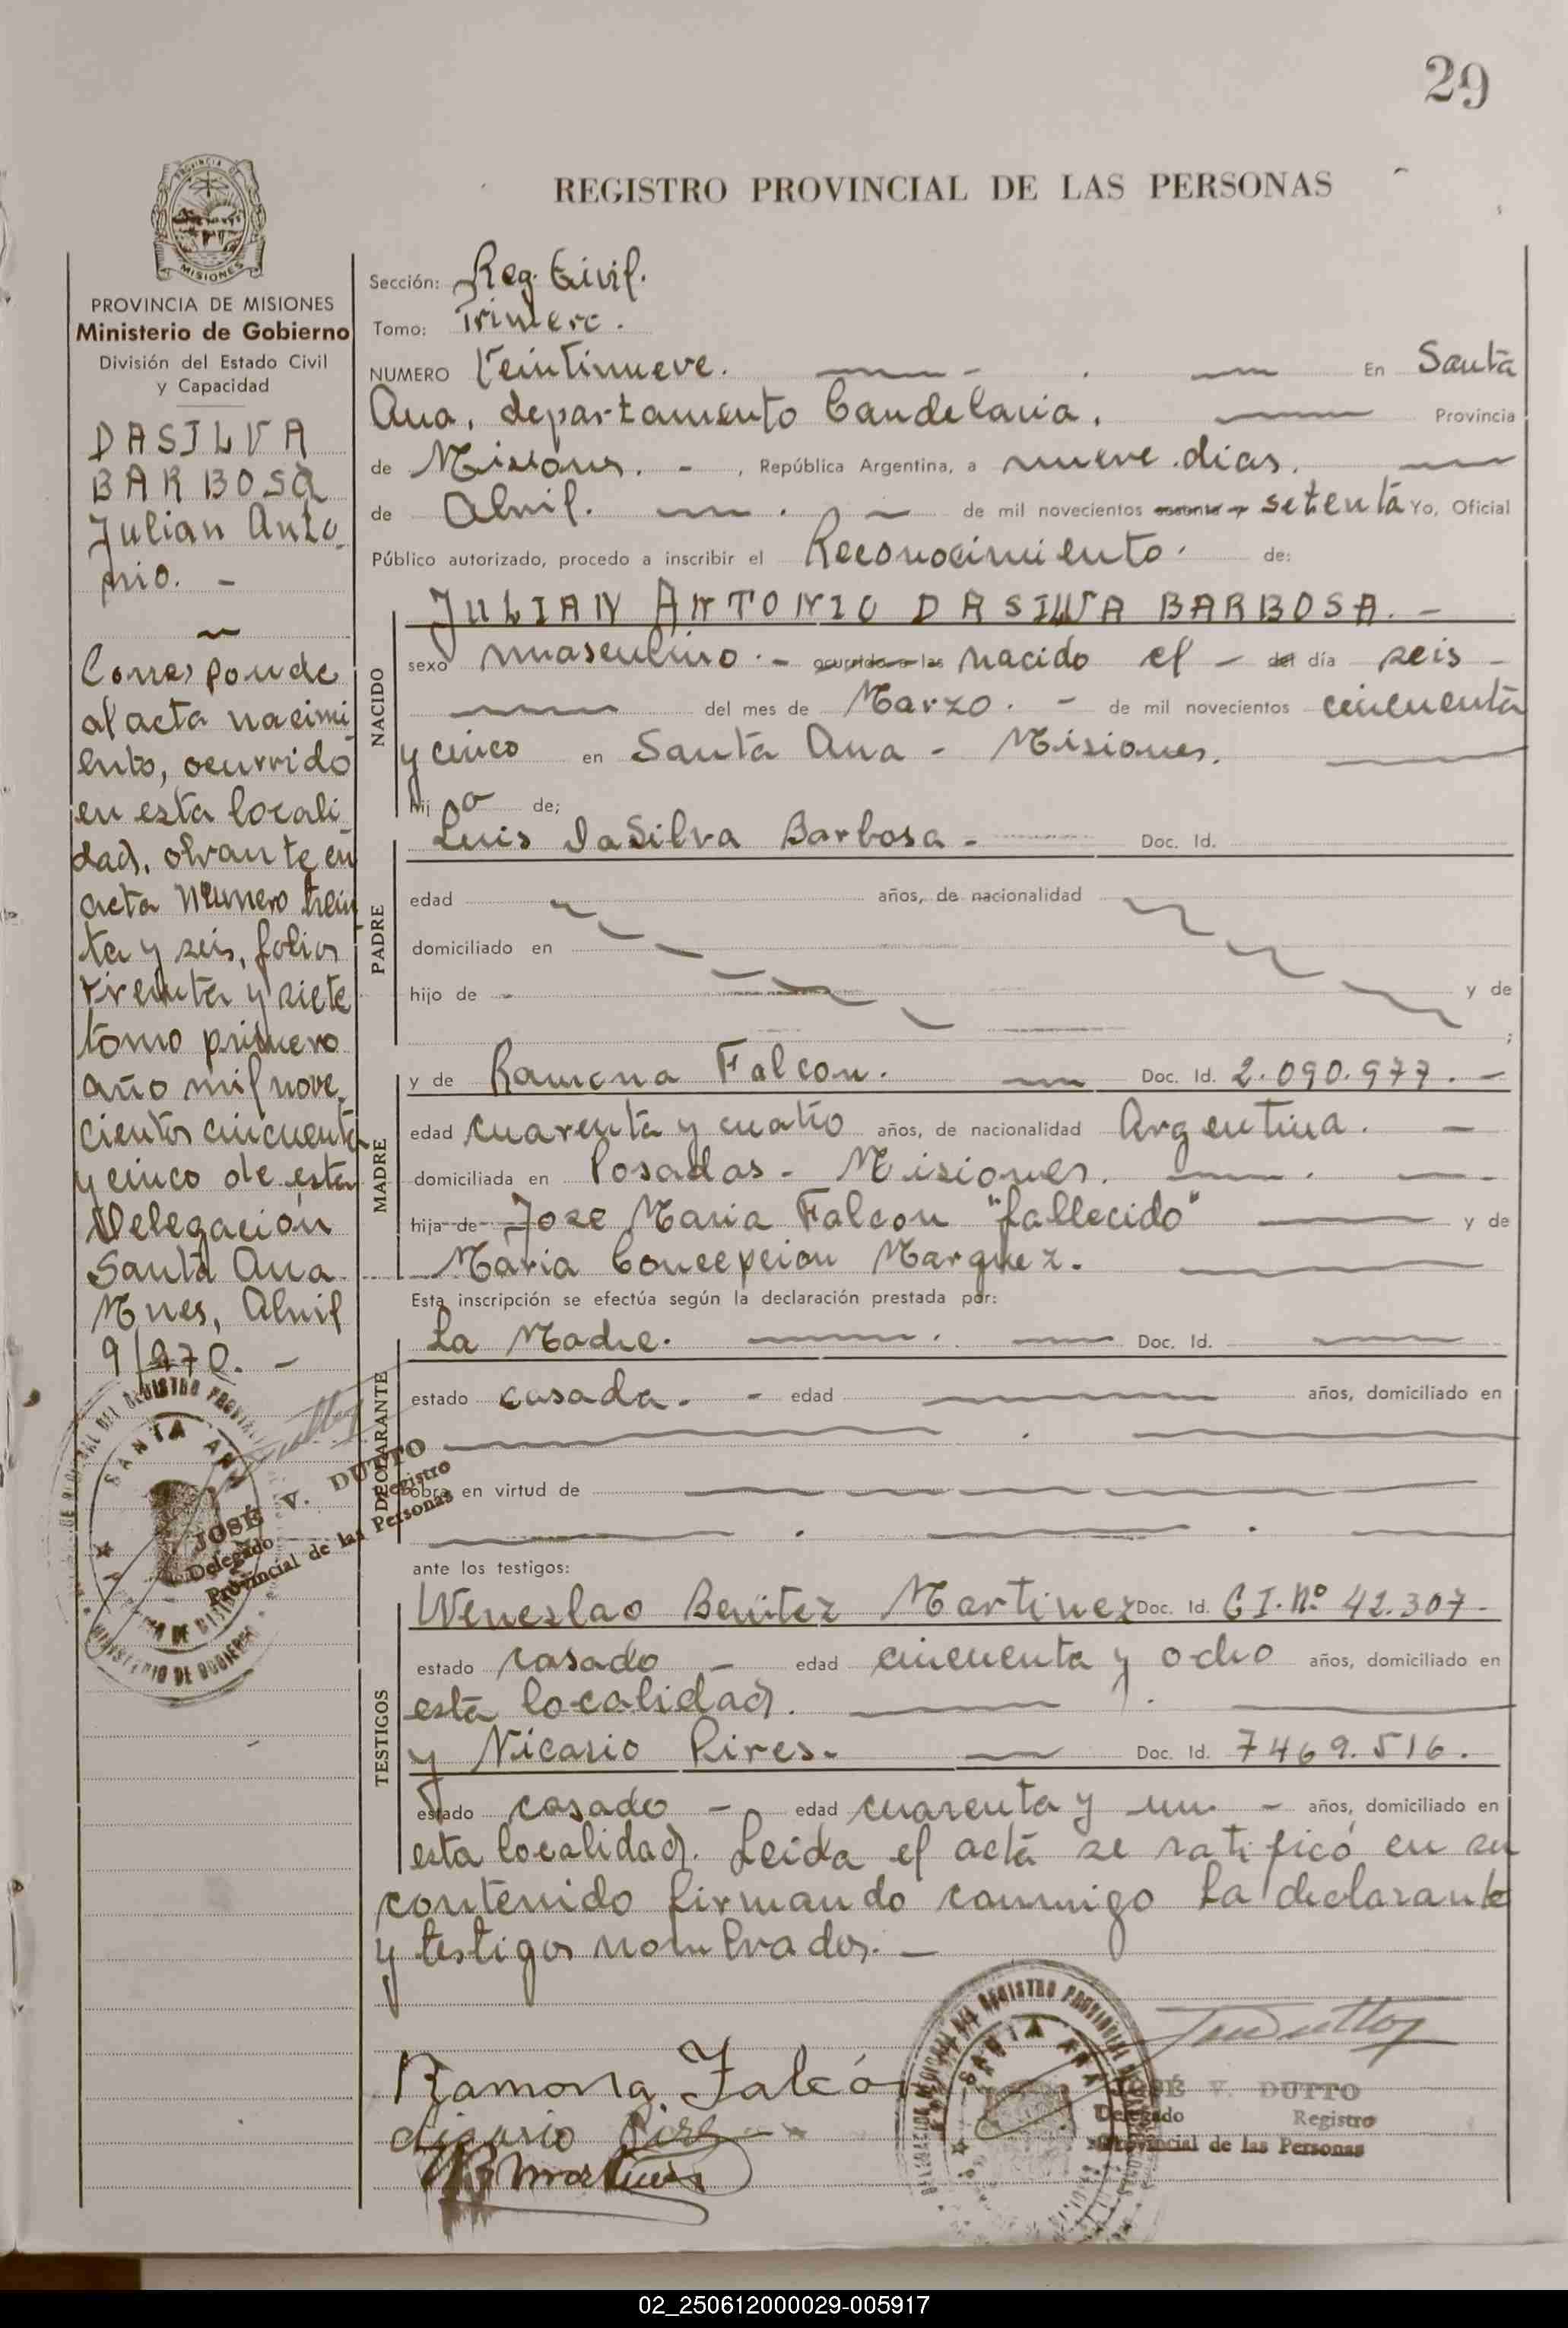 29
REGISTRO PROVINCIAL DE LAS PERSONAS
PROVINCIA DE
MISIONES
PROVINCIA DE MISIONES
Ministerio de Gobierno
División del Estado Civil
y Capacidad
DASILVA
BARBOSA
Julian Anto
nio. -
Corresponde
al acta nacimi
ento, ocurrido
en esta locali
dad, obrante en
acta Número trein
ta y seis, folios
treinta y siete
tomo primero
año mil nove
cientos cincuenta
y cinco de esta
Delegación
Santa Ana
Mnes, Abril
9/970. -
SANTA ANA
JOSÉ V. DUTTO
Delegado Registro
Provincial de las Personas
MINISTERIO DE GOBIERNO
Sección: Reg. Civil.
Tomo: Primero.
NUMERO Veintinueve. En Santa
Ana, departamento Candelaria. Provincia
de Misiones. - , República Argentina, a nueve días.
de Abril. de mil novecientos setenta Yo, Oficial
Público autorizado, procedo a inscribir el Reconocimiento. de:
NACIDO
JULIAN ANTONIO DASILVA BARBOSA. -
sexo masculino. - ocurrido a las nacido el - del día seis -
del mes de Marzo. - de mil novecientos cincuenta
y cinco en Santa Ana - Misiones.
hij o de;
PADRE
Luis DaSilva Barbosa - Doc. Id.
edad años, de nacionalidad
domiciliado en
hijo de - y de
;
MADRE
y de Ramona Falcon. Doc. Id. 2.090.977. -
edad cuarenta y cuatro años, de nacionalidad Argentina. -
domiciliada en Posadas - Misiones.
hija de Jose Maria Falcon "fallecido" y de
Maria Concepcion Marquez.
Esta inscripción se efectúa según la declaración prestada por:
DECLARANTE
La Madre. Doc. Id.
estado casada. - edad años, domiciliado en
obra en virtud de
ante los testigos:
TESTIGOS
Weneslao Benitez Martinez Doc. Id. C I. Nº 42.307-
estado casado - edad cincuenta y ocho años, domiciliado en
esta localidad.
y Nicasio Pires. Doc. Id. 7469.516.
estado casado - edad cuarenta y un - años, domiciliado en
esta localidad. Leida el acta se ratificó en su
contenido firmando conmigo la declarante
y testigos nombrados. -
Ramona Falcón
SANTA ANA
JOSÉ V. DUTTO
Delegado Registro
Provincial de las Personas
02_250612000029-005917